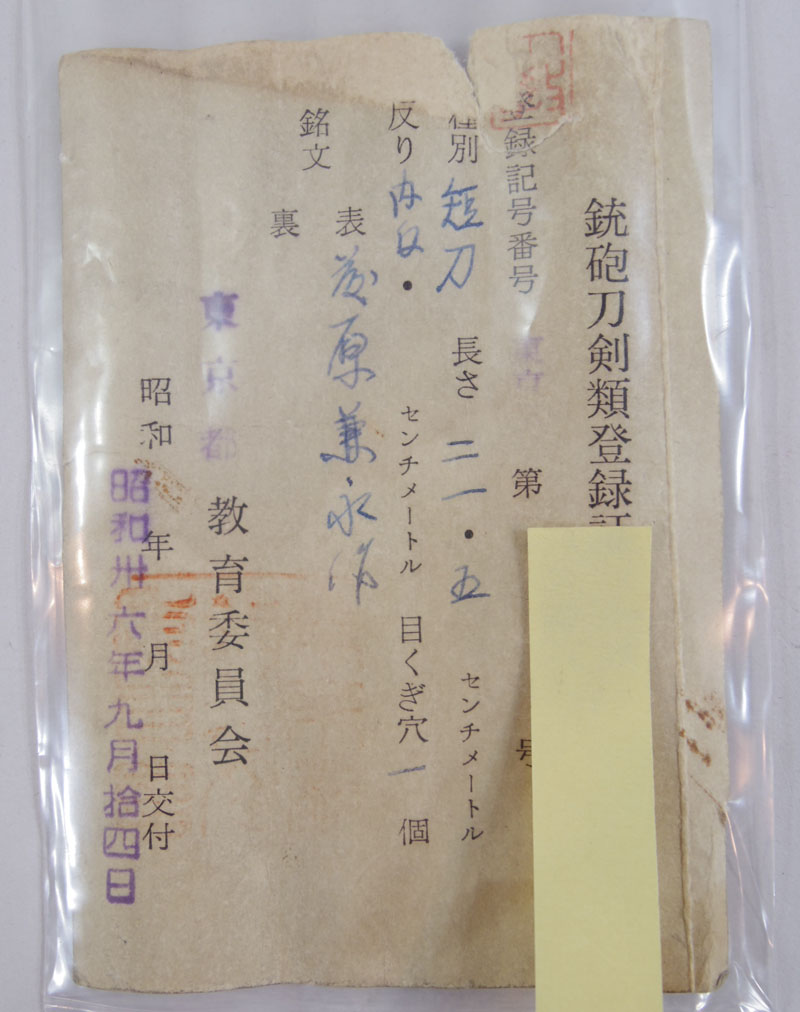 銃砲刀剣類登録証
登録記号番号 東京 第 号
種別 短刀 長さ 二一・五 センチメートル
反り 内反・ センチメートル 目くぎ穴 一 個
銘文 表 藤原兼永作
裏
東京都 教育委員会
昭和 年 月 日交付
昭和卅六年九月拾四日